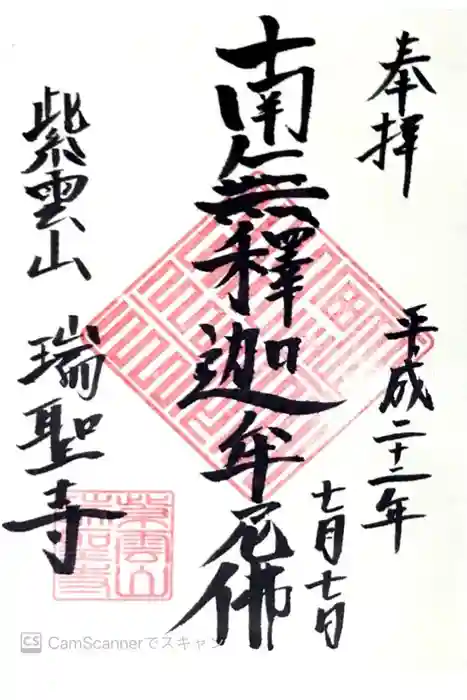 奉拝
平成二十二年
七月七日
南無釋迦牟尼佛
紫雲山
瑞聖寺
紫雲山
瑞聖寺
CS CamScannerでスキャン